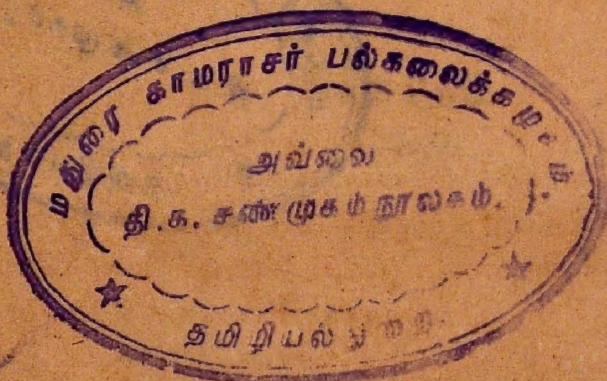 மதுரை காமராசர் பல்கலைக்கழகம்.
அவ்வை
தி.க. சண்முகம் நூலகம்.
தமிழியல் துறை